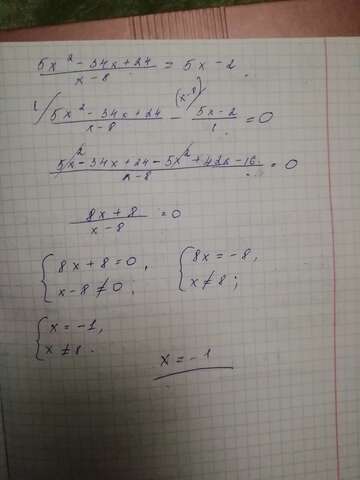 5x² - 34x + 24 / x - 8 = 5x - 2.
1/ 5x² - 34x + 24 / x - 8 - (x-8)/ 5x - 2 / 1 = 0
5x² - 34x + 24 - 5x² + 42x - 16 / x - 8 = 0
8x + 8 / x - 8 = 0
{ 8x + 8 = 0, { 8x = -8,
x - 8 ≠ 0; x ≠ 8;
{ x = -1,
x ≠ 8.
x = -1